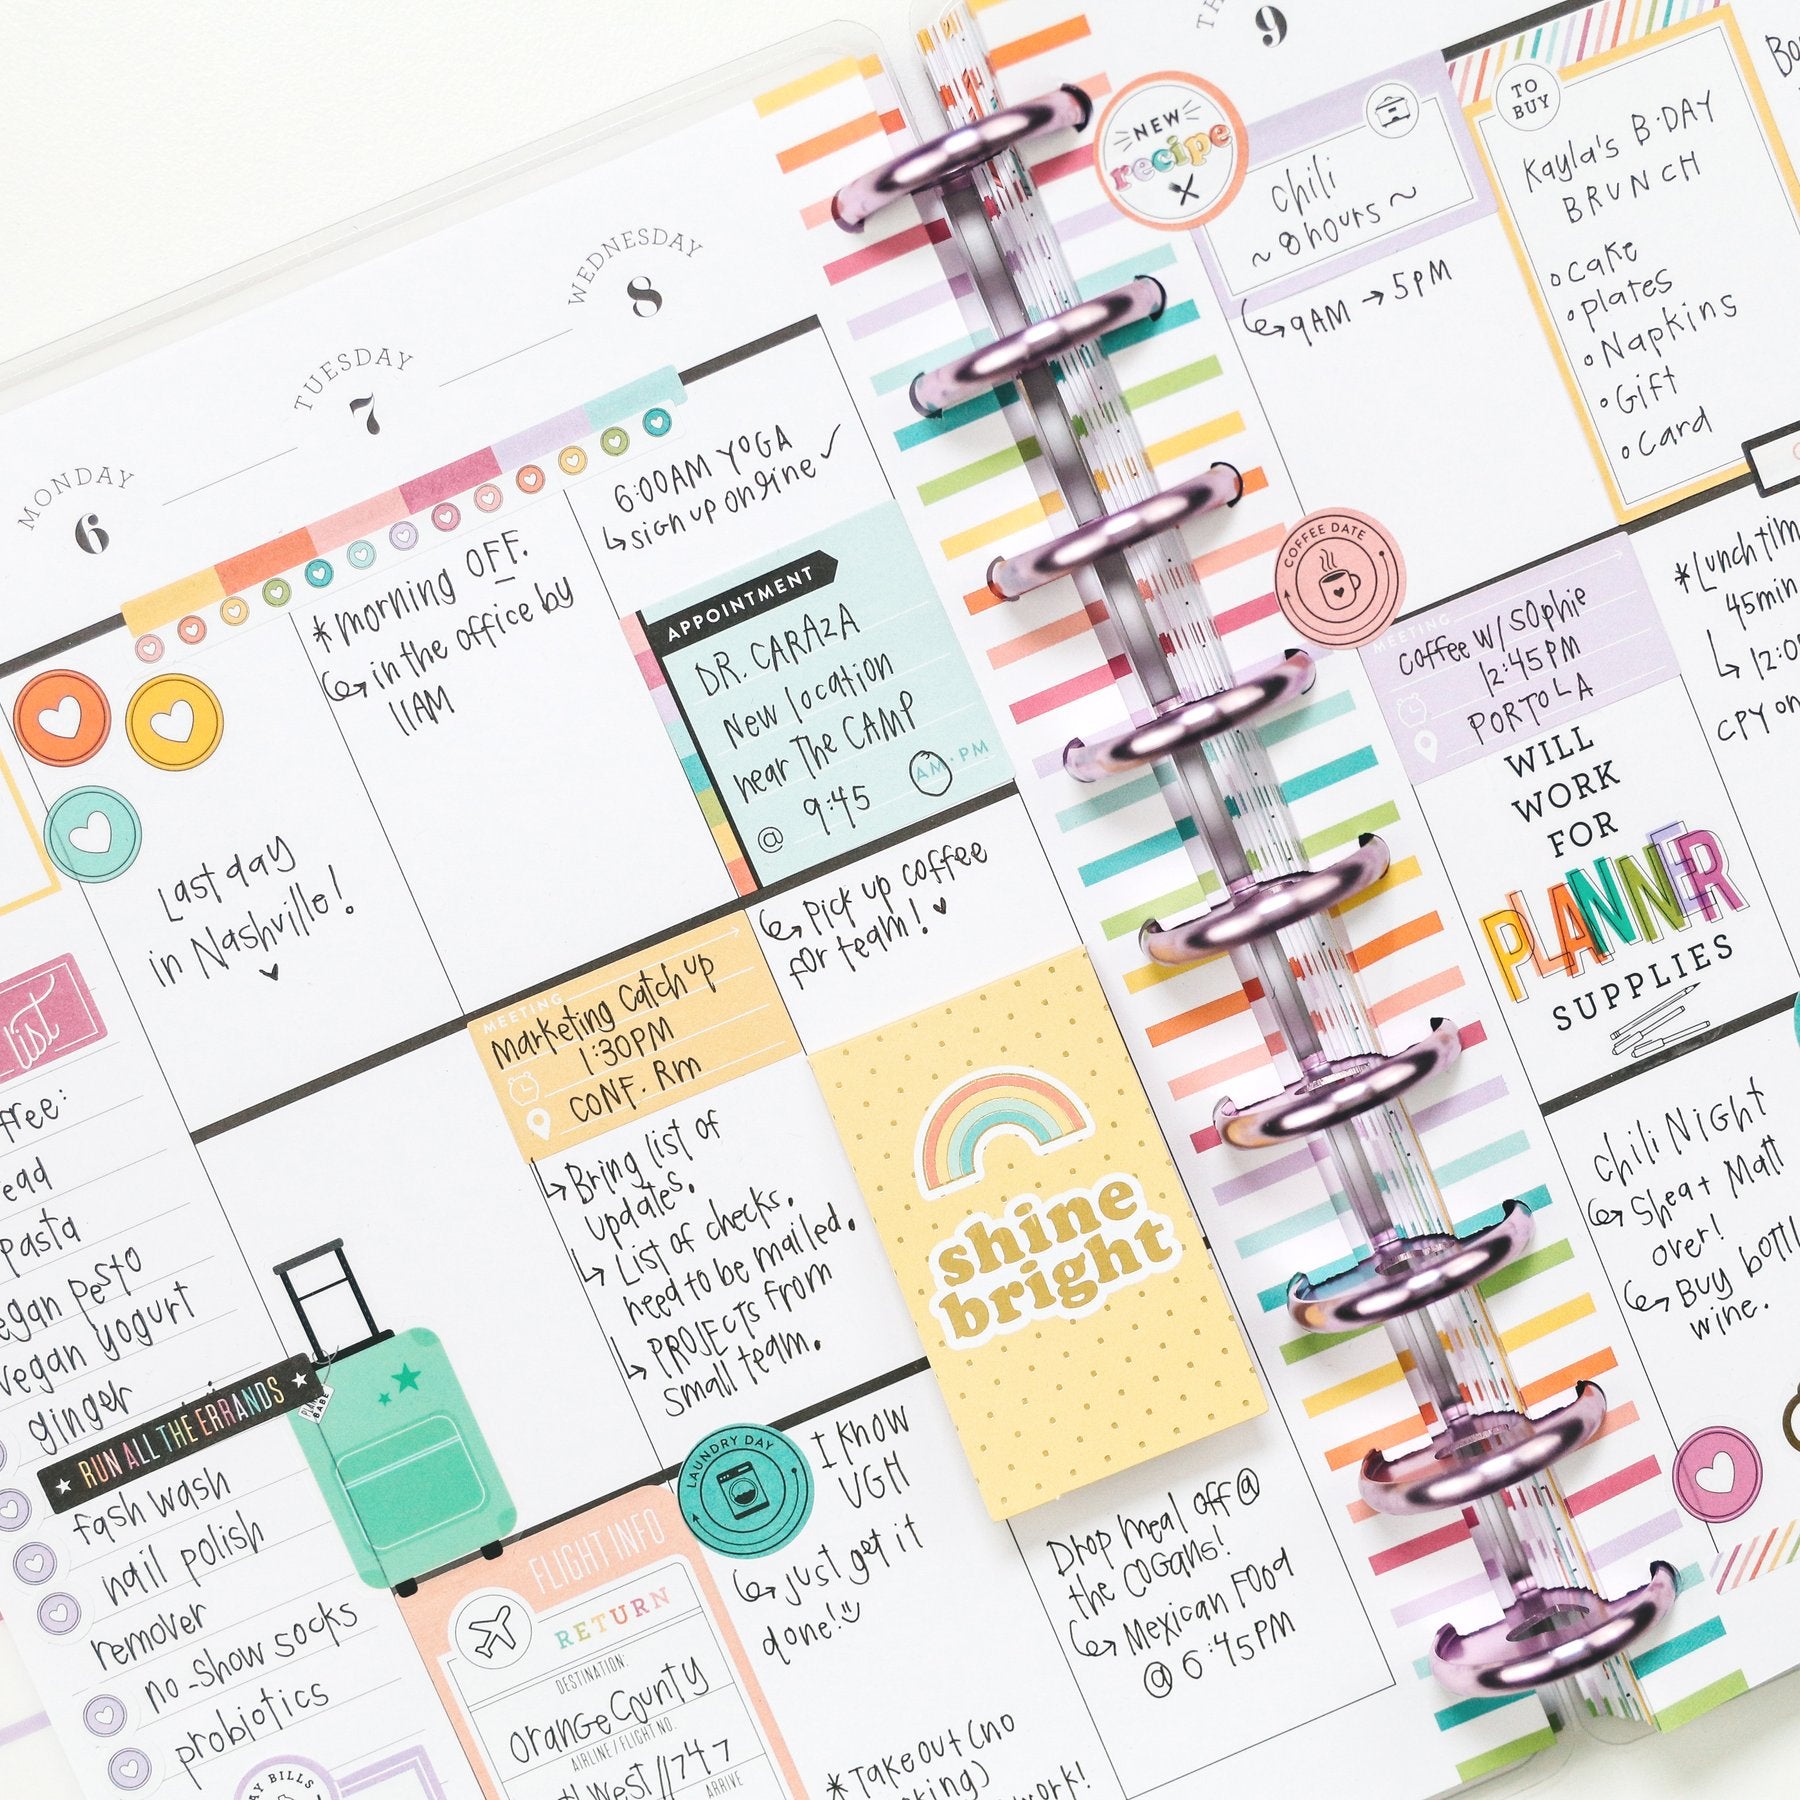 MONDAY
6
Last day
in Nashville!
list
free:
pasta
vegan pesto
vegan yogurt
ginger
RUN ALL THE ERRANDS
BABE
fash wash
nail polish
remover
no-show socks
probiotics
BILLS
FLIGHT INFO
RETURN
DESTINATION:
Orange County
AIRLINE/FLIGHT NO.
West // 747
ARRIVE
TUESDAY
7
*morning OFF.
in the office by
11AM
MEETING
Marketing Catch up
1:30PM
CONF. Rm
Bring list of
updates.
List of checks.
need to be mailed.
PROJECTS from
small team.
LAUNDRY DAY
I KNOW
UGH
just get it
done!
*Take out (no
WEDNESDAY
8
6:00AM YOGA
sign up online
APPOINTMENT
DR. CARAZA
New location
near the CAMP
@ 9:45 AM • PM
Pick up coffee
for team!
shine
bright
Drop meal off @
the COGANS!
Mexican Food
@ 6:45PM
9
NEW
recipe
chili
~ 8 hours ~
9AM → 5PM
COFFEE DATE
MEETING
coffee w/ Sophie
12:45PM
PORTOLA
WILL
WORK
FOR
PLANNER
SUPPLIES
Chili NIGHT
Shea + Matt
over!
Buy
wine.
TO
BUY
Kayla's B·DAY
BRUNCH
• cake
• plates
• Napkins
• Gift
• Card
*Lunch
45min